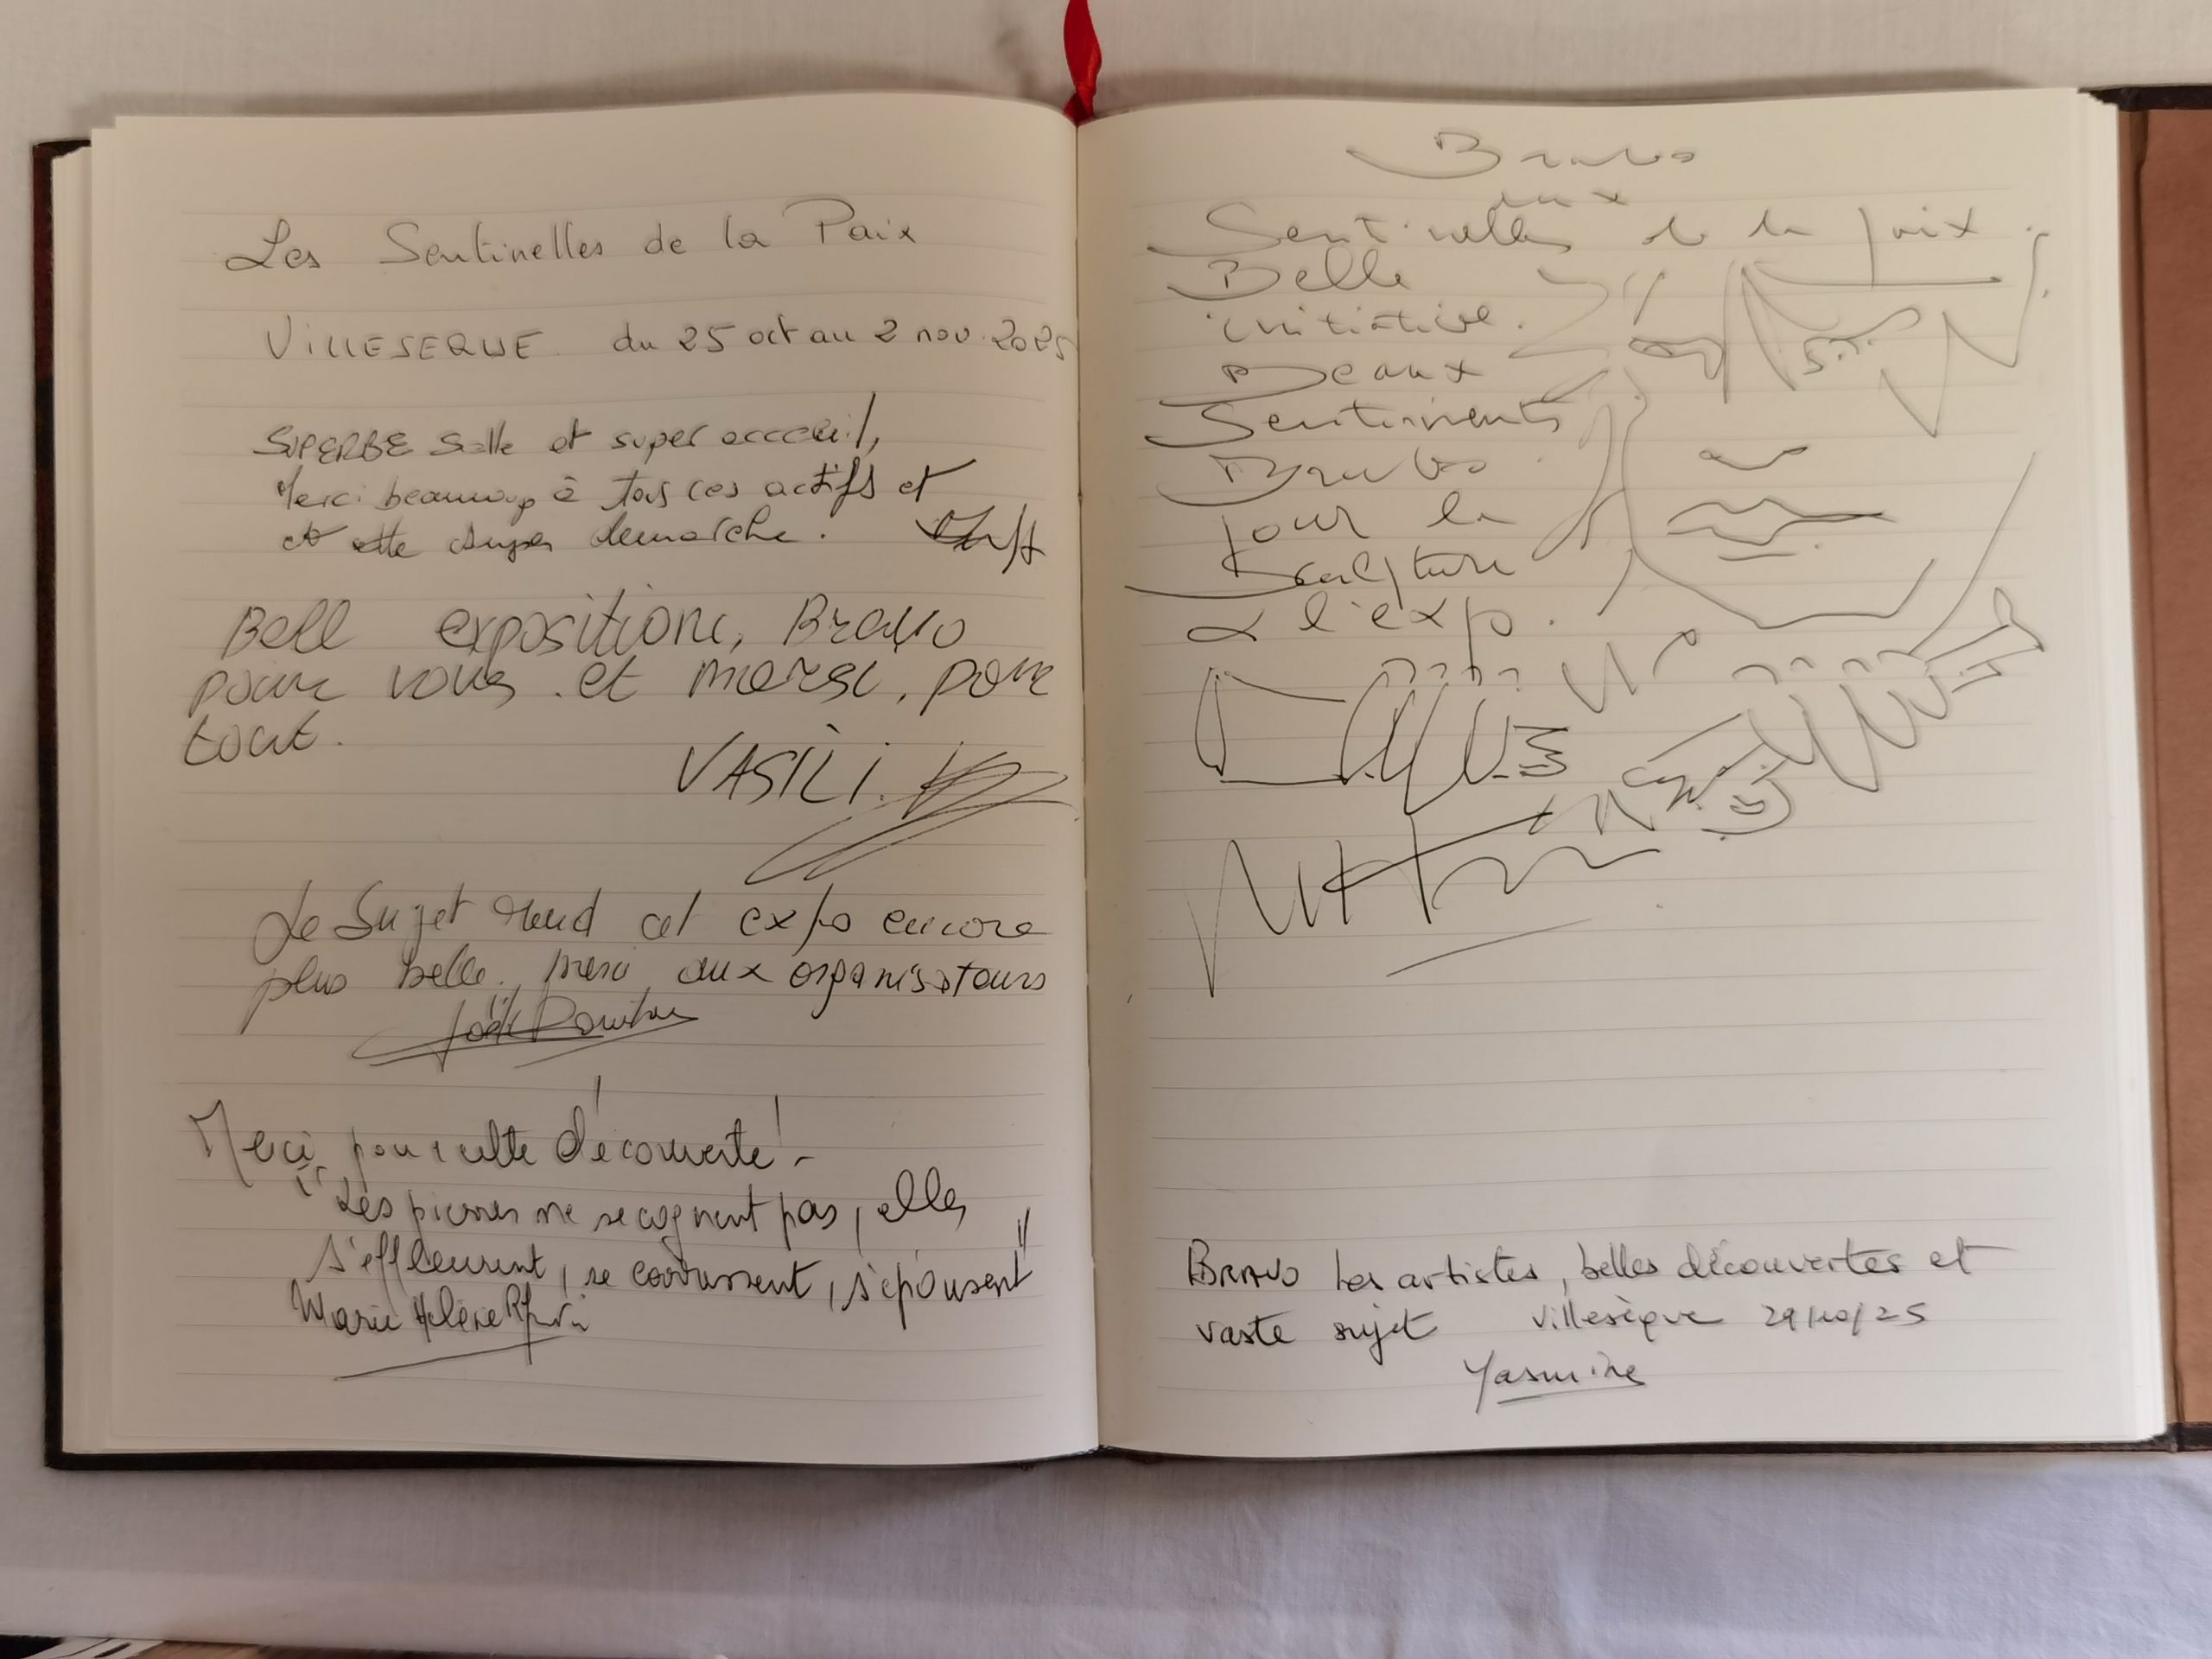 Les Sentinelles de la Paix
VILLESEQUE du 25 oct au 2 nov. 2025
SUPERBE Salle et super acceuil,
Merci beaucoup à tous ces actifs et
et cette super demarche.
Bell expositione, Bravo
pour vous et mersi, pour
tout.
VASILI.
Le Sujet rend cet expo encore
plus belle. merci aux organisateurs
Joël
Merci pour cette découverte !
"Les pierres ne se cognent pas, elles
s'effleurent, se caressent, s'épousent"
Marie Hélène
Bravo
aux
Sentinelles de la paix
Belle
initiative.
Beaux
Sentiments
Bravo
pour la
Sculpture
& l'expo.
BRAVO les artistes, belles découvertes et
vaste sujet Villesèque 29/10/25
Yasmine